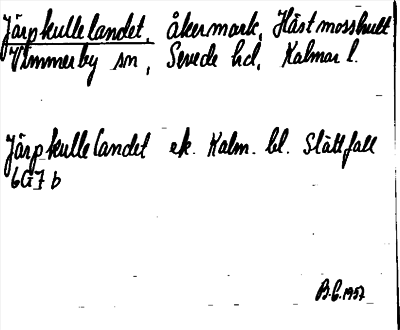 Järpkullelandet, åkermark, Hästmosshult
Vimmerby sn, Sevede hd, Kalmar l.
Järpkullelandet ek. Kalm. bl. Slättfall
6G7 b
B.G. 1957